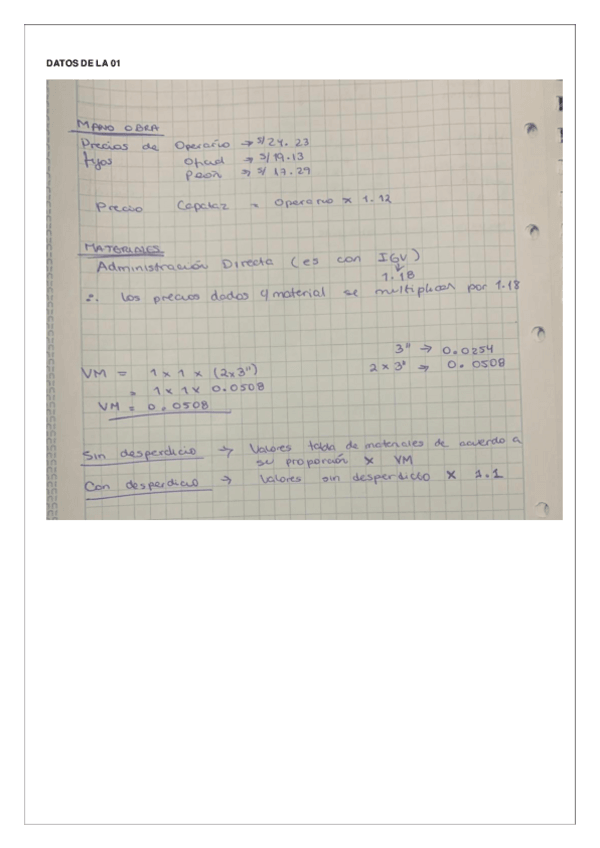 DATOS DE LA 01
MANO OBRA
Precios de Operario → S/ 24.23
fijos Oficial → S/ 19.13
Peón → S/ 17.29
Precio Capataz = Operario x 1.12
MATERIALES
Administración Directa (es con IGV)
1.18
∴ los precios dados q material se multiplican por 1.18
3" → 0.0254
VM = 1 x 1 x (2x3") 2 x 3" → 0.0508
= 1 x 1 x 0.0508
VM = 0.0508
Sin desperdicio → Valores tabla de materiales de acuerdo a
su proporción x VM
Con desperdicio → Valores sin desperdicio x 1.1